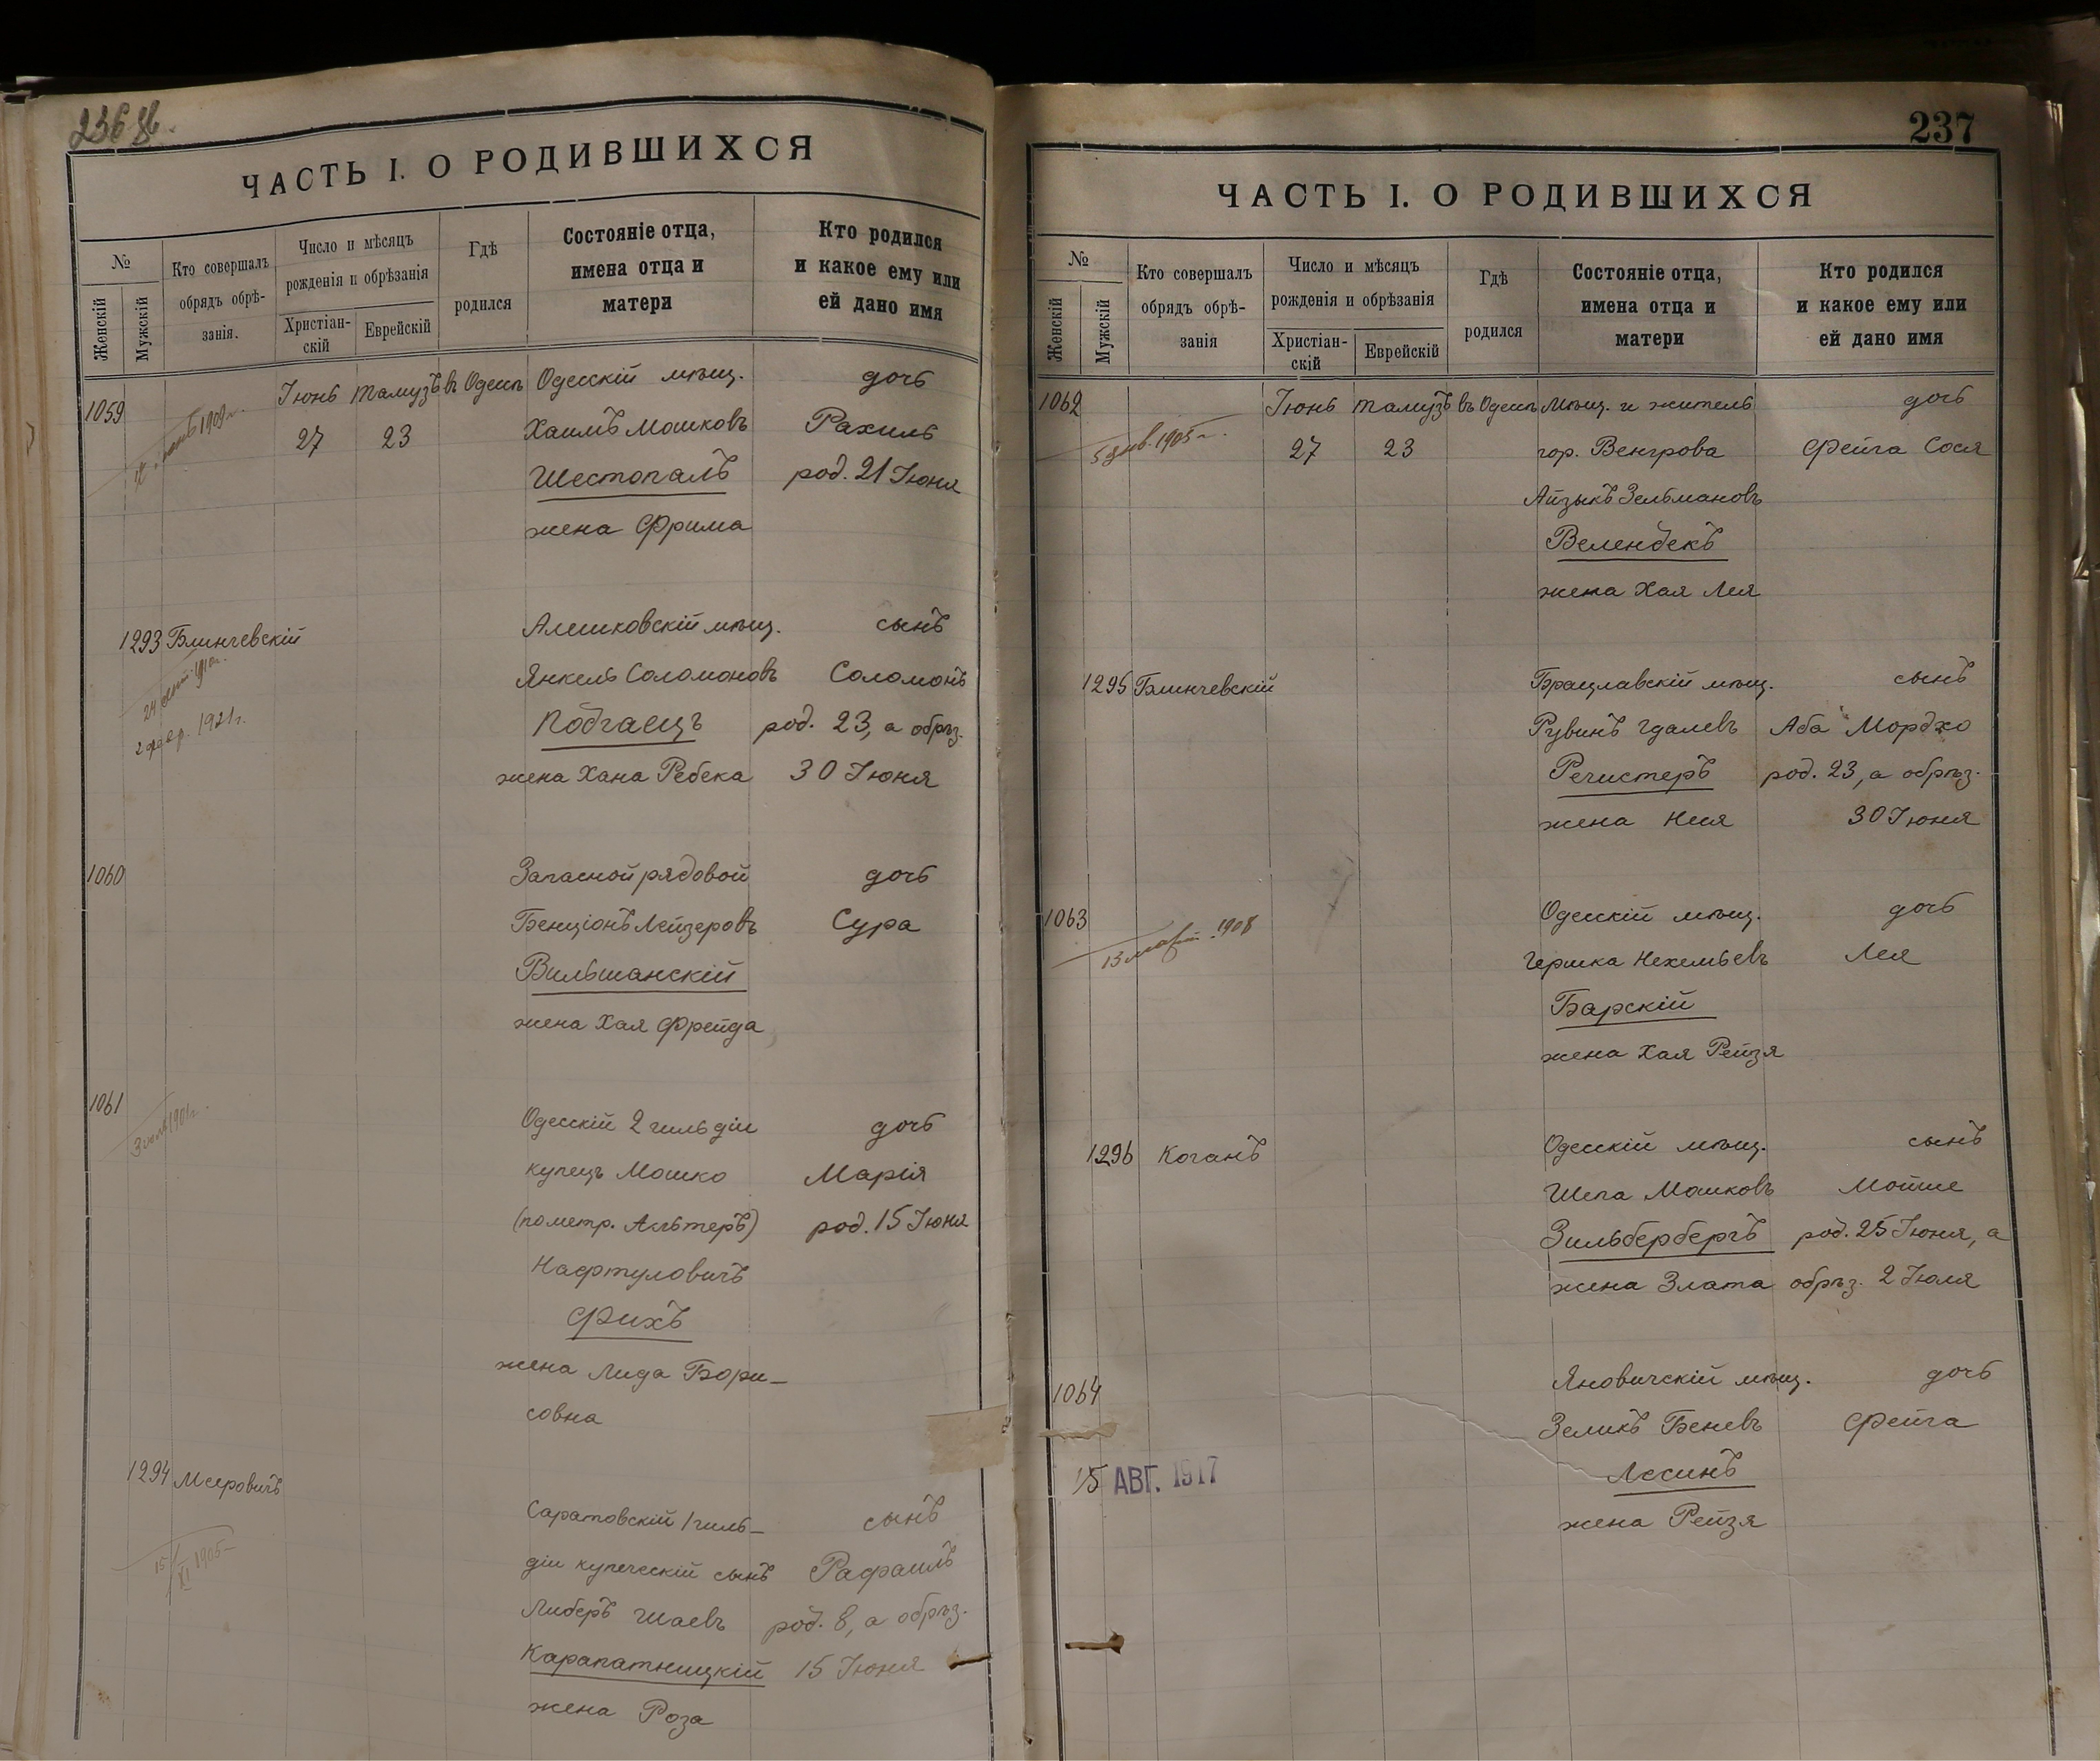 236 об.
ЧАСТЬ I. О РОДИВШИХСЯ
№
Женскій
Мужскій
Кто совершалъ
обрядъ обрѣ-
занія.
Число и мѣсяцъ
рожденія и обрѣзанія
Христіан-
скій
Еврейскій
Гдѣ
родился
Состояніе отца,
имена отца и
матери
Кто родился
и какое ему или
ей дано имя
1059 Іюнь Тамузъ въ Одессѣ Одесскій мѣщ. дочь
1909 г.
27 23 Хаимъ Мошковъ Рахиль
Шестопалъ род. 21 Іюня
жена Фрима
1293 Блинчевскій Алешковскій мѣщ. сынъ
Янкель Соломоновъ Соломонъ
2 фев. 1921 г.
Подгаецъ род. 23, а обрѣз.
жена Хана Ребека 30 Іюня
1060 Запасной рядовой дочь
Бенціонъ Лейзеровъ Сура
Вильшанскій
жена Хая Фрейда
1061 Одесскій 2 гильдіи дочь
купецъ Мошко Марія
(пометр. Альтеръ) род. 15 Іюня
Нафтуловичъ
Фихъ
жена Лида Бори-
совна
1294 Мееровичъ Саратовскій 1 гиль-сынъ
15/XI 1905
діи купеческій сынъ Рафаилъ
Либеръ Шаевъ род. 8, а обрѣз.
Карапатницкій 15 Іюня
жена Роза
237
ЧАСТЬ I. О РОДИВШИХСЯ
№
Женскій
Мужскій
Кто совершалъ
обрядъ обрѣ-
занія
Число и мѣсяцъ
рожденія и обрѣзанія
Христіан-
скій
Еврейскій
Гдѣ
родился
Состояніе отца,
имена отца и
матери
Кто родился
и какое ему или
ей дано имя
1062 Іюнь Тамузъ въ Одессѣ Мѣщ. и житель дочь
5 янв. 1905 г.
27 23 гор. Венгрова Фейга Сося
Айзыкъ Зельмановъ
Веленбекъ
жена Хая Лея
1295 Блинчевскій Брацлавскій мѣщ. сынъ
Рувинъ Гдалевъ Аба Мордко
Регистеръ род. 23, а обрѣз.
жена Неся 30 Іюня
1063 Одесскій мѣщ. дочь
13 март. 1908
Гершка Нехемьевъ Лея
Барскій
жена Хая Рейзя
1296 Коганъ Одесскій мѣщ. сынъ
Шепа Мошковъ Мойше
Зильбербергъ род. 25 Іюня, а
жена Злата обрѣз. 2 Іюля
1064 Яновичскій мѣщ. дочь
Зеликъ Беневъ Фейга
15 АВГ. 1917
Лесинъ
жена Рейзя